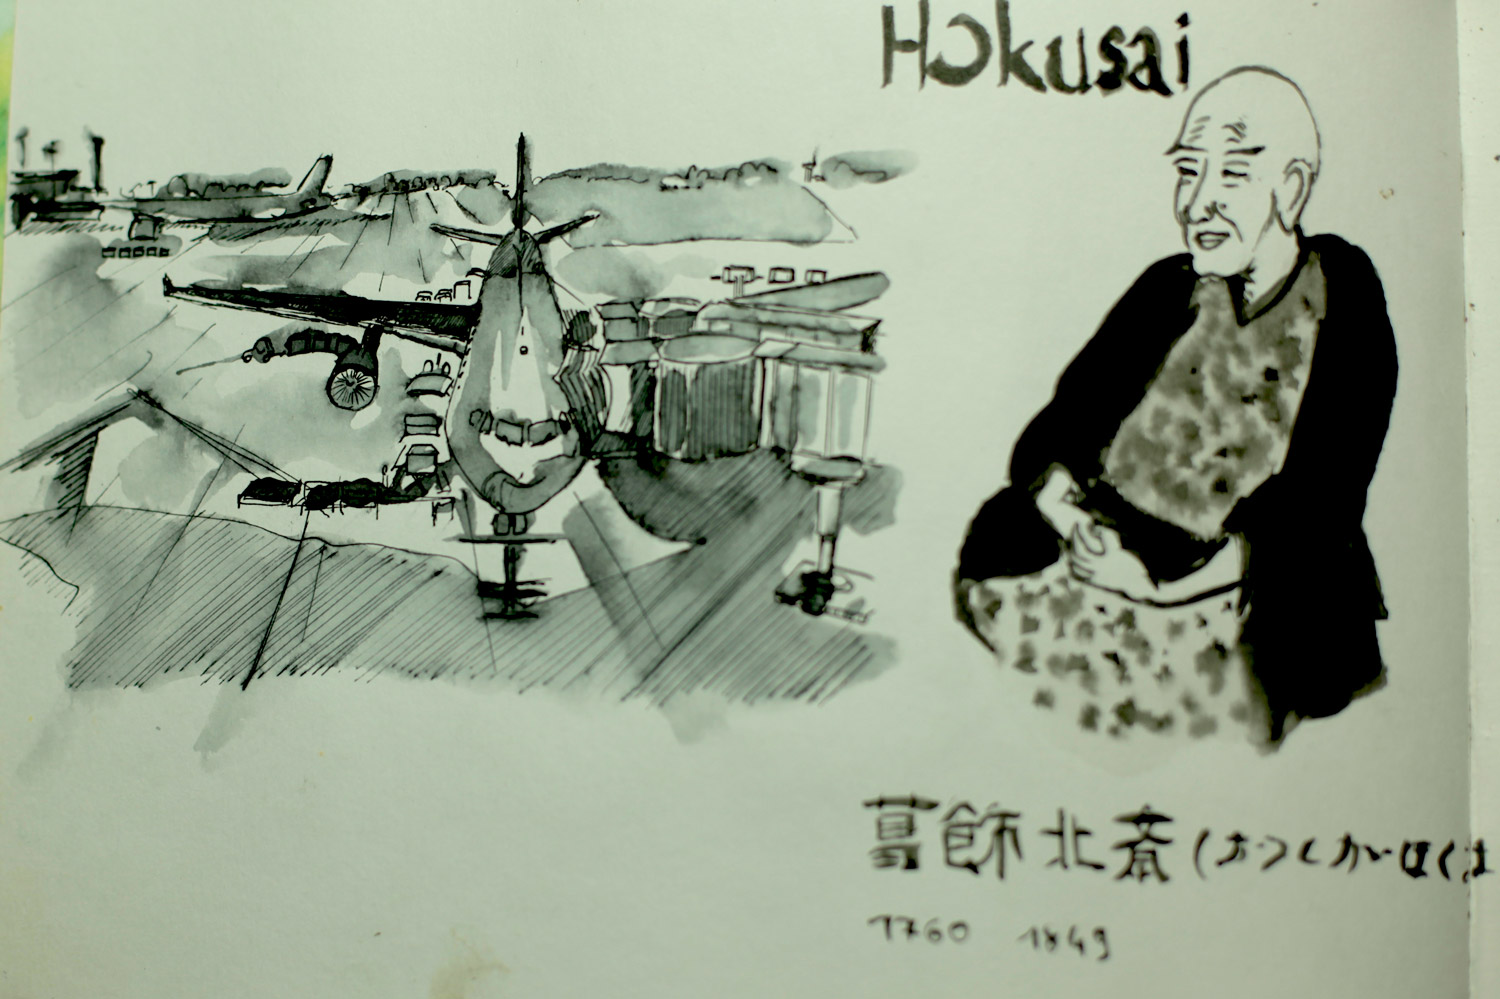 Hokusai
葛飾北斎(おつしかほくさ
1760 1849